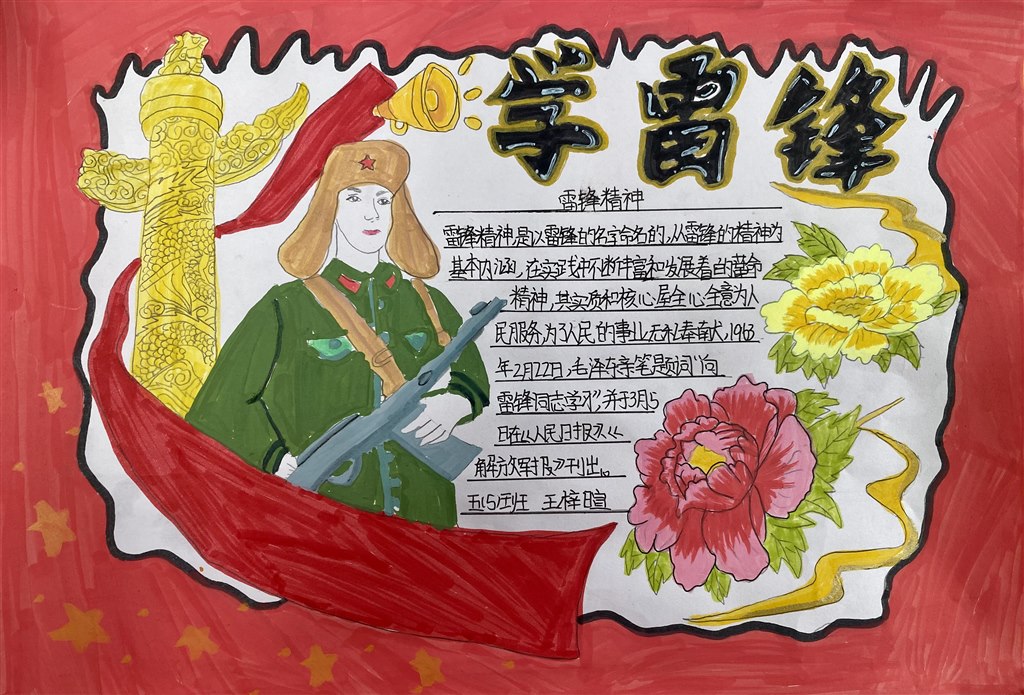 学雷锋
雷锋精神
雷锋精神,是以雷锋的名字命名的,从雷锋的精神为
基本内涵,在实践中不断丰富和发展着的革命
精神,其实质和核心是全心全意为人
民服务,为了人民的事业无私奉献,1963
年2月22日,毛泽东亲笔题词"向
雷锋同志学习",并于3月5
日在《人民日报》《
解放军报》刊出。
五(5)班 王梓暄